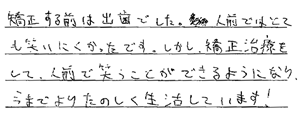 矯正する前は出歯でした。人前ではとて
も笑いにくかったです。しかし、矯正治療を
して、人前で笑うことができるようになり、
今までよりたのしく生活しています！